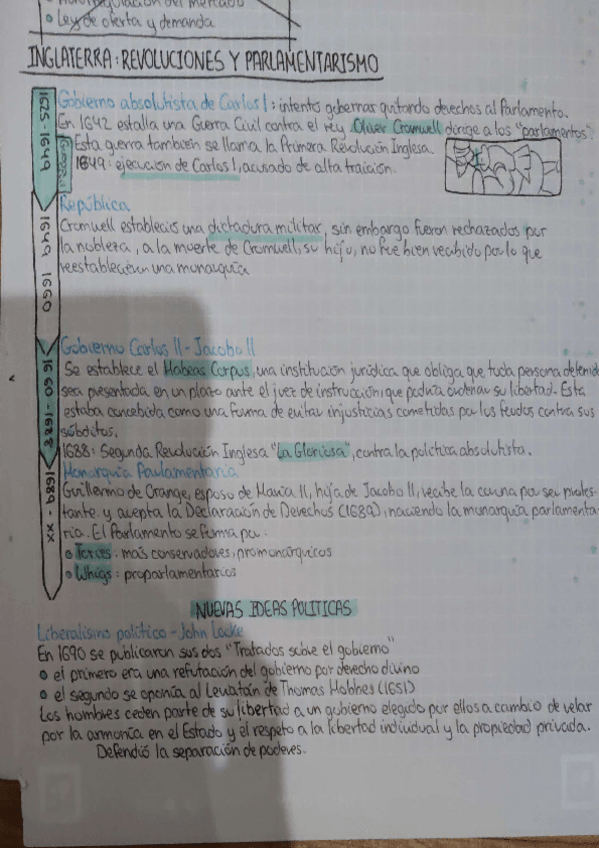 Autorregulación del mercado
• Ley de oferta y demanda
INGLATERRA: REVOLUCIONES Y PARLAMENTARISMO
1625 - 1649
Gobierno absolutista de Carlos I: intentó gobernar quitando derechos al Parlamento.
En 1642 estalla una Guerra Civil contra el rey Oliver Cromwell dirige a los "parlamentos".
Esta guerra tambien se llama la Primera Revolución Inglesa.
1649: ejecución de Carlos I, acusado de alta traición.
1649 1660
República
Cromwell estableció una dictadura militar, sin embargo fueron rechazados por
la nobleza, a la muerte de Cromwell, su hijo, no fue bien recibido por lo que
reestablecieron una monarquía
1660 - 1688
Gobierno Carlos II - Jacobo II
Se establece el Habeas Corpus, una institución jurídica que obliga que toda persona detenida
sea presentada en un plazo ante el juez de instrucción, que podría ordenar su libertad. Esta
estaba concebida como una forma de evitar injusticias cometidas por los feudos contra sus
súbditos.
1688: Segunda Revolución Inglesa "La Gloriosa", contra la política absolutista.
1689 - XX
Monarquía Parlamentaria
Guillermo de Orange, esposo de María II, hija de Jacobo II, recibe la corona por ser protes-
tante. y acepta la Declaración de Derechos (1689), naciendo la monarquía parlamenta-
ria. El Parlamento se forma por:
• Tories: más conservadores, promonárquicos
• Whigs: proparlamentarios
NUEVAS IDEAS POLITICAS
Liberalismo político - John Locke
En 1690 se publicaron sus dos "Tratados sobre el gobierno"
• el primero era una refutación del gobierno por derecho divino
• el segundo se oponía al Leviatán de Thomas Hobbes (1651)
Los hombres ceden parte de su libertad a un gobierno elegido por ellos a cambio de velar
por la armonía en el Estado y el respeto a la libertad individual y la propiedad privada.
Defendió la separación de poderes.